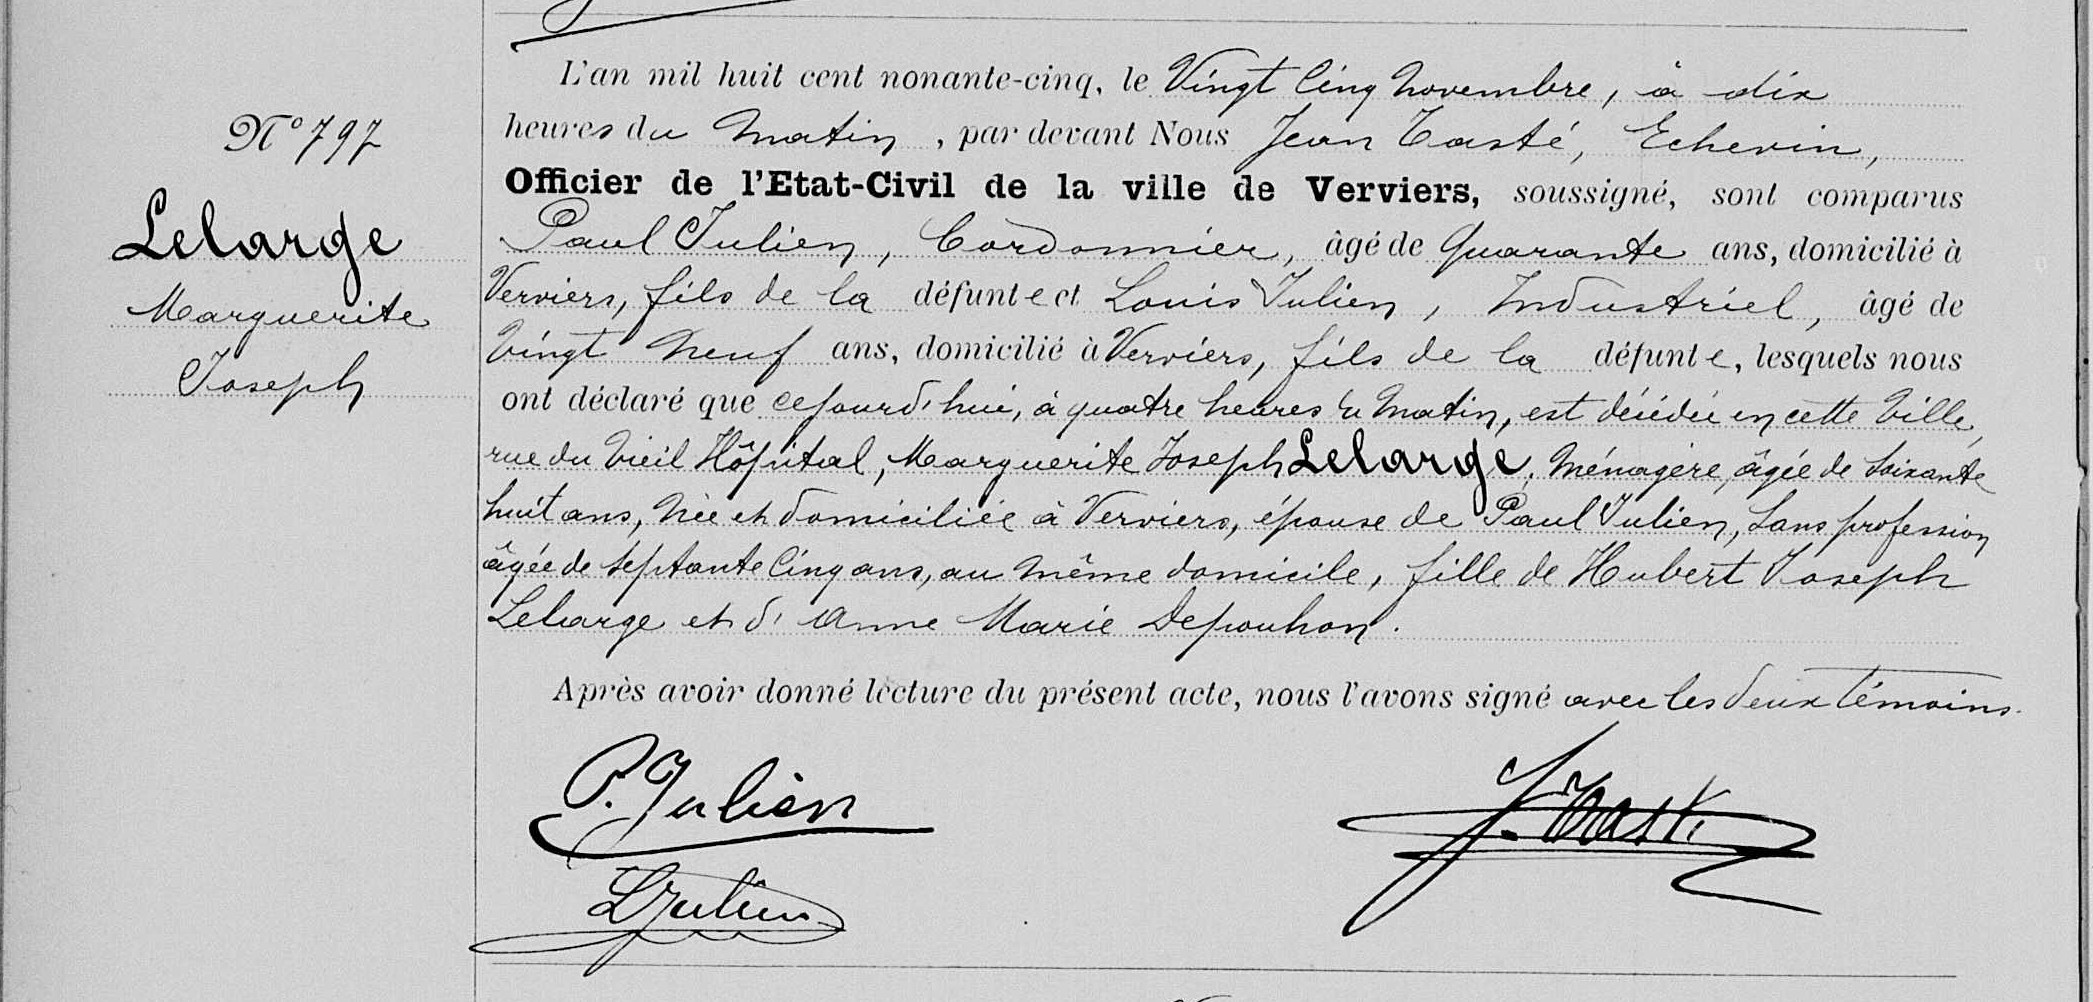 N° 797
Lelarge
Marguerite
Joseph
L'an mil huit cent nonante-cinq, le Vingt Cinq Novembre, à dix
heures du Matin, par devant Nous Jean Tasté, Echevin,
Officier de l'Etat-Civil de la ville de Verviers, soussigné, sont comparus
Paul Julien, Cordonnier, âgé de Quarante ans, domicilié à
Verviers, fils de la défunte et Louis Julien, Industriel, âgé de
Vingt Neuf ans, domicilié à Verviers, fils de la défunte, lesquels nous
ont déclaré que cejourd'hui, à quatre heures du Matin, est décédée en cette Ville,
rue du Vieil Hôpital, Marguerite Joseph Lelarge, Ménagère, âgée de Soixante
huit ans, Née et domiciliée à Verviers, épouse de Paul Julien, Sans profession
âgée de Septante Cinq ans, au même domicile, fille de Hubert Joseph
Lelarge et d'Anne Marie Depouhon.
Après avoir donné lecture du présent acte, nous l'avons signé avec les deux témoins.
P. Julien
J. Tasté
L Julien